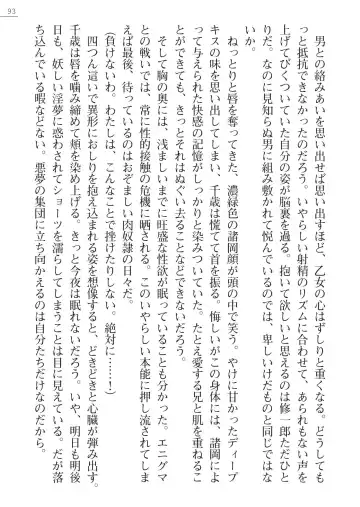 93
　男との絡みあいを思い出せば思い出すほど、乙女の心はずしりと重くなる。どうしても
っと抵抗できなかったのだろう。いやらしい射精のリズムに合わせて、あられもない声を
上げてびくついていた自分の姿が脳裏を過る。抱いて欲しいと思えるのは修一郎ただひと
りだけ。なのに見知らぬ男に組み敷かれて悦んでいるのでは、卑しいけだものと同じではな
いか。
　ねっとりと唇を奪ってきた、濃緑色の諸岡顔が頭の中で笑う。やけに甘かったディープ
キスの味を思い出してしまい、千歳は慌てて首を振る。悔しいがこの身体には、諸岡によ
って与えられた快感の記憶がしっかりと染みついていた。たとえ愛する兄と肌を重ねるこ
とができても、きっとそれはぬぐい去ることなどできないだろう。
　そして胸の奥には、浅ましいまでに旺盛な性欲が眠っていることも分かった。エニグマ
との戦いでは、常に性的接触の危機に晒される。このいやらしい本能に押し流されてしま
えば最後、待っているのはおぞましい肉奴隷の日々だ。
（負けないわ、わたしは、こんなことで挫けたりしない。絶対に……！）
　四つん這いで異形におしりを抱え込まれる姿を想像すると、どきどきと心臓が弾み出す。
千歳は唇を噛み締めて頬を染める。きっと今夜は眠れないだろう。いや、明日も明後
日も、妖しい淫夢に惑わされてショーツを濡らしてしまうことは目に見えている。だが落
ち込んでいる暇などない。悪夢の集団に立ち向かえるのは自分たちだけなのだから。